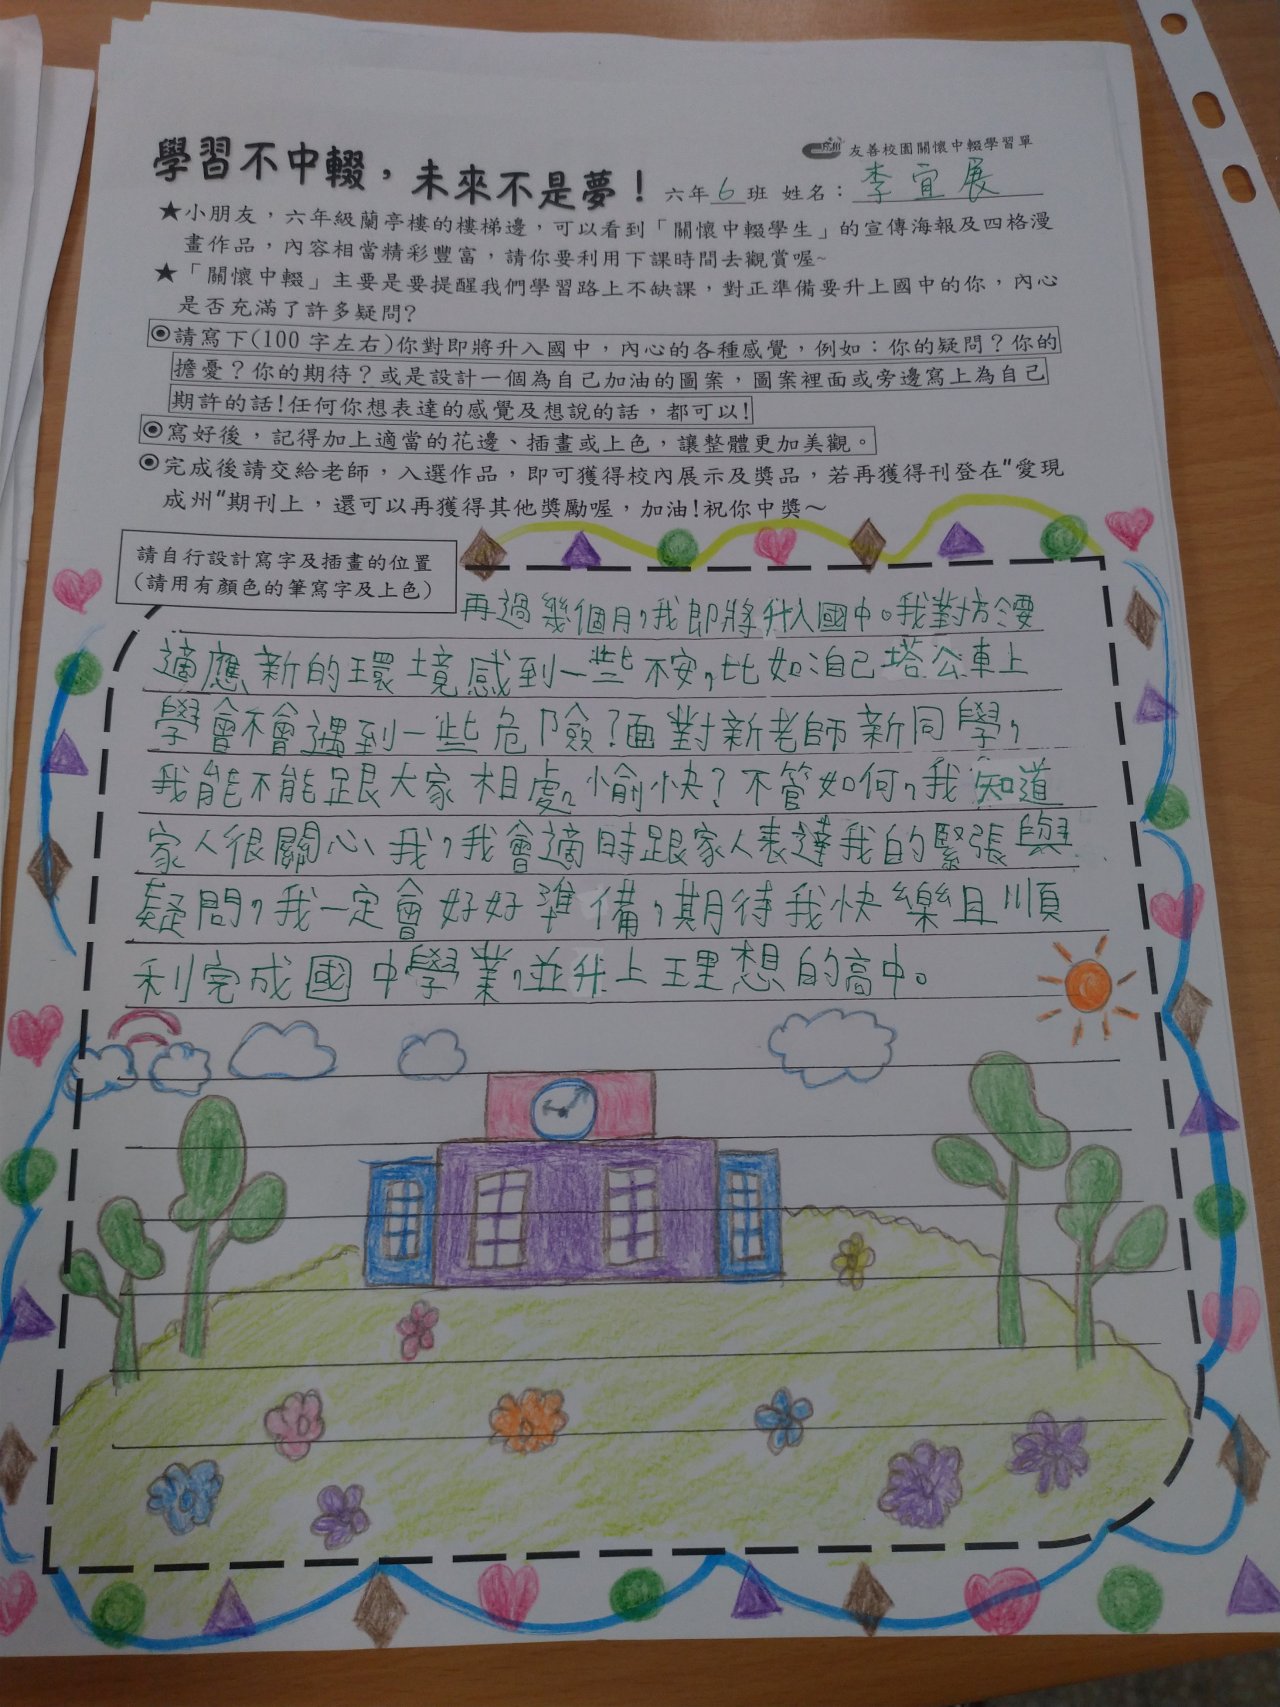 友善校園關懷中輟學習單
學習不中輟，未來不是夢！
六年6班 姓名：李宜展
★小朋友，六年級蘭亭樓的樓梯邊，可以看到「關懷中輟學生」的宣傳海報及四格漫
畫作品，內容相當精彩豐富，請你要利用下課時間去觀賞喔~
★「關懷中輟」主要是要提醒我們學習路上不缺課，對正準備要升上國中的你，內心
是否充滿了許多疑問?
◉請寫下(100 字左右)你對即將升入國中，內心的各種感覺，例如：你的疑問？你的
擔憂？你的期待？或是設計一個為自己加油的圖案，圖案裡面或旁邊寫上為自己
期許的話!任何你想表達的感覺及想說的話，都可以!
◉寫好後，記得加上適當的花邊、插畫或上色，讓整體更加美觀。
◉完成後請交給老師，入選作品，即可獲得校內展示及獎品，若再獲得刊登在"愛現
成州"期刊上，還可以再獲得其他獎勵喔，加油!祝你中獎～
請自行設計寫字及插畫的位置
(請用有顏色的筆寫字及上色)
再過幾個月，我即將升入國中。我對於要
適應新的環境感到一些不安，比如自己塔公車上
學會不會遇到一些危險？面對新老師新同學，
我能不能跟大家相處愉快？不管如何，我知道
家人很關心我，我會適時跟家人表達我的緊張與
疑問，我一定會好好準備，期待我快樂且順
利完成國中學業，並升上理想的高中。